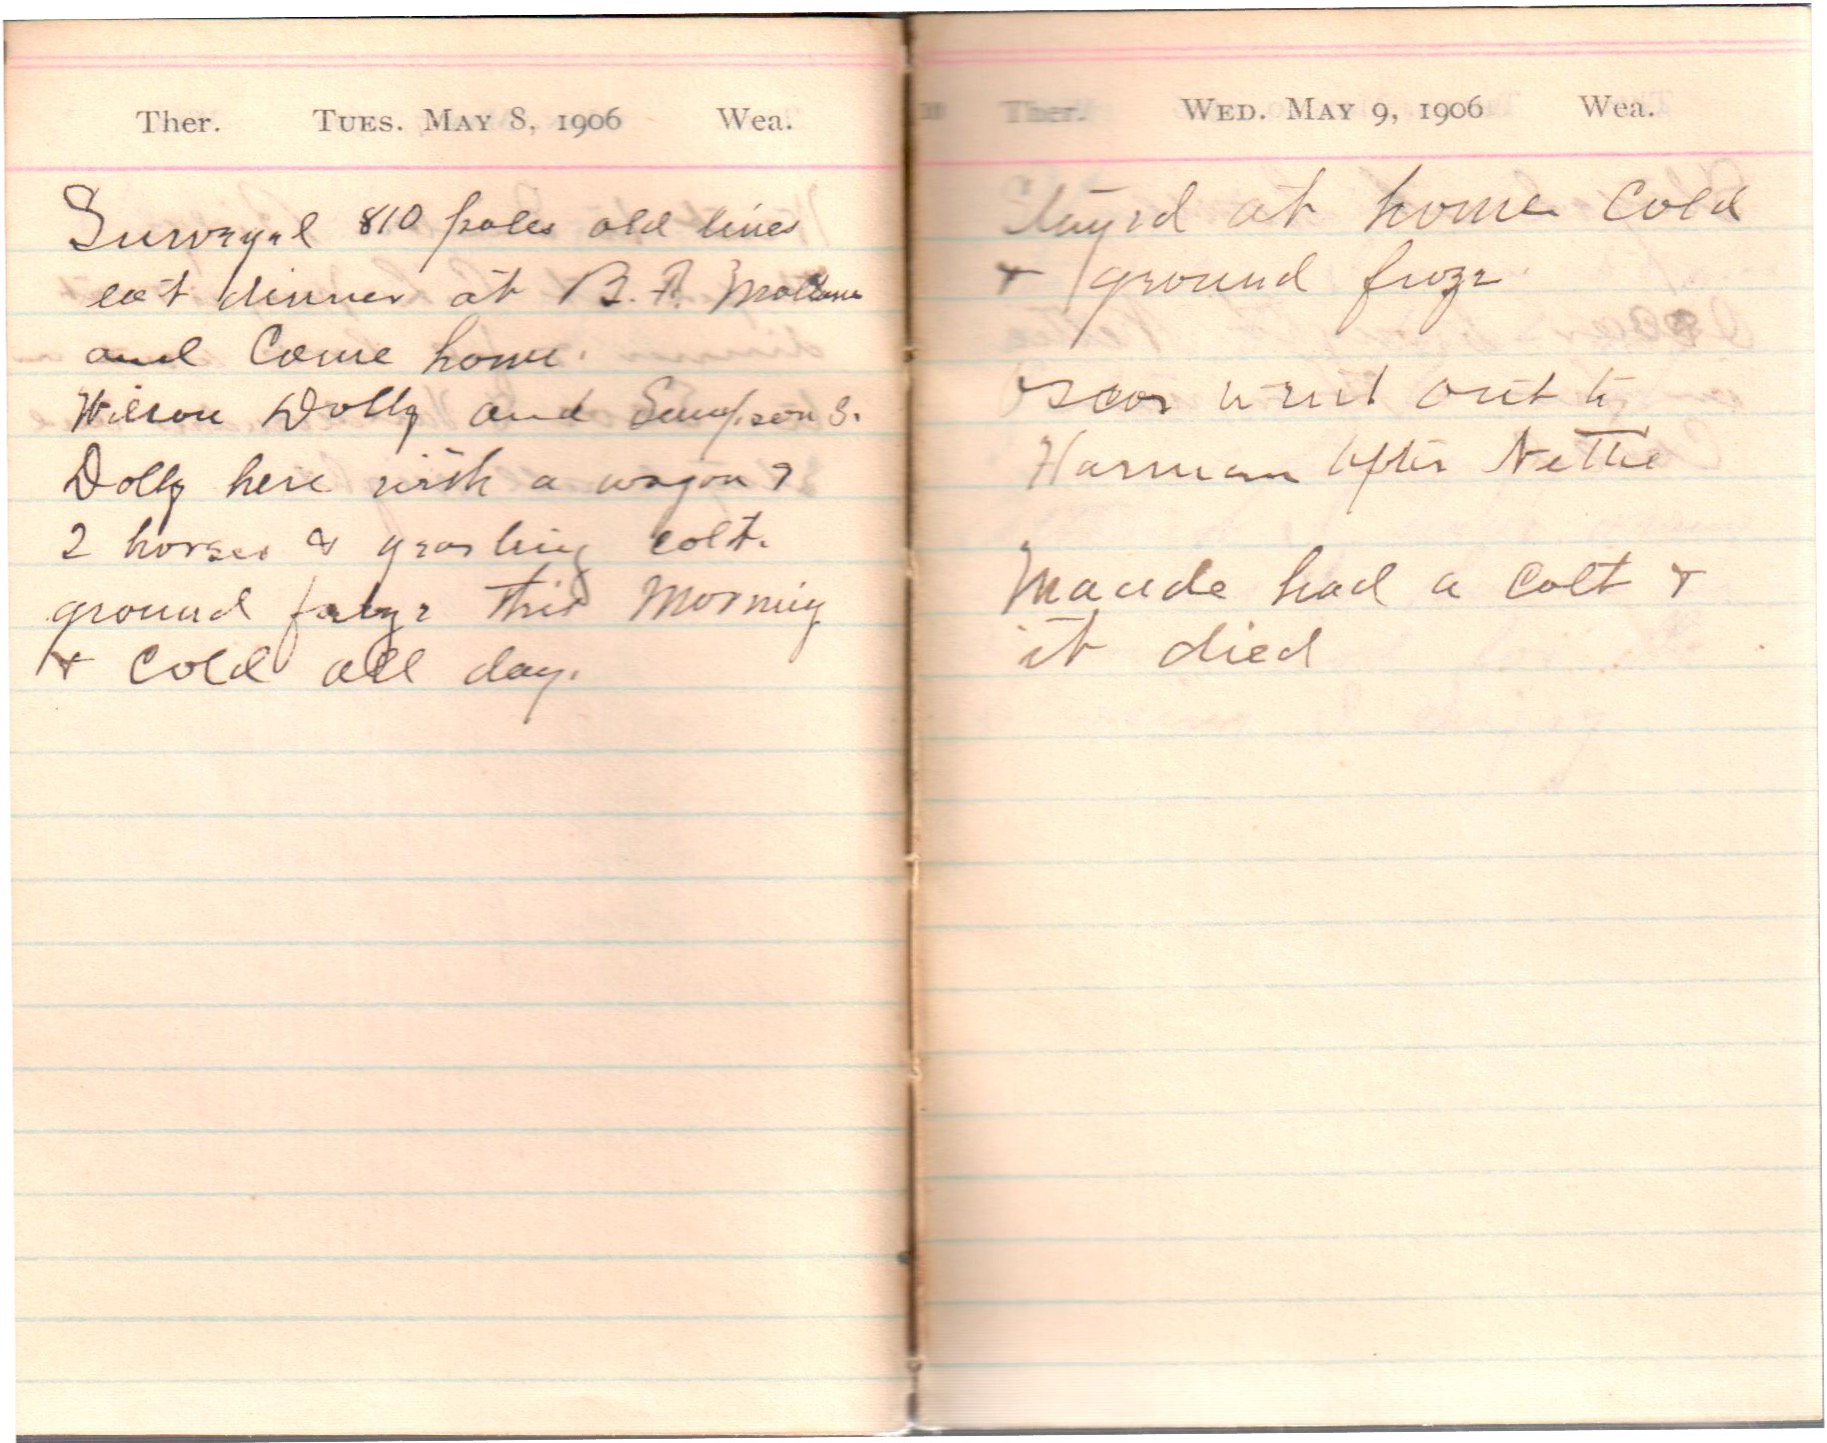 Ther. TUES. MAY 8, 1906 Wea.
Surveyed 810 poles old lines
eat dinner at B. F.
and Come home.
Wilson Dolly and Simpson S.
Dolly here with a wagon &
2 horses & yearling colt.
ground froze this Morning
& Cold all day.
Ther. WED. MAY 9, 1906 Wea.
Stayed at home Cold
& ground froze
oscar went out to
Harman after Nettie
Maude had a Colt &
it died